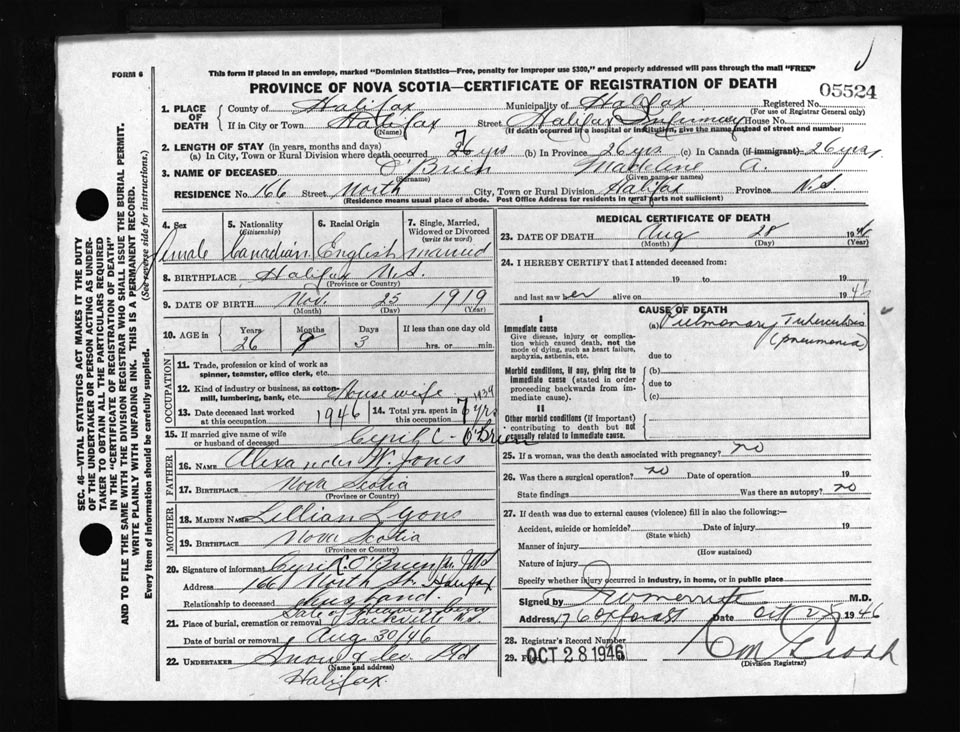 FORM 6
This form if placed in an envelope, marked "Dominion Statistics—Free, penalty for improper use $300," and properly addressed will pass through the mail "FREE"
PROVINCE OF NOVA SCOTIA—CERTIFICATE OF REGISTRATION OF DEATH
05524
1. PLACE OF DEATH
County of Halifax Municipality of Halifax Registered No.
(For use of Registrar General only)
If in City or Town Halifax Street Halifax Infirmary House No.
(Name) (If death occurred in a hospital or institution, give the name instead of street and number)
2. LENGTH OF STAY (in years, months and days)
(a) In City, Town or Rural Division where death occurred 26 yrs (b) In Province 26 yrs (c) In Canada (if immigrant) 26 yrs.
3. NAME OF DECEASED O'Brien Madeline A.
(Surname) (Given name or names)
RESIDENCE No. 166 Street North City, Town or Rural Division Halifax Province N.S.
(Residence means usual place of abode. Post Office Address for residents in rural parts not sufficient)
4. Sex 5. Nationality (Citizenship) 6. Racial Origin 7. Single, Married, Widowed or Divorced (write the word)
Female Canadian English married
8. BIRTHPLACE Halifax N.S.
(Province or Country)
9. DATE OF BIRTH Nov. 25 1919
(Month) (Day) (Year)
10. AGE in Years Months Days If less than one day
26 9 3 hrs. or min.
OCCUPATION
11. Trade, profession or kind of work as spinner, teamster, office clerk, etc.
12. Kind of industry or business, as cotton-mill, lumbering, bank, etc. Housewife
13. Date deceased last worked at this occupation 1946 14. Total yrs. spent in this occupation 7 yrs 1939
15. If married give name of wife or husband of deceased Cyril C. O'Brien
FATHER
16. NAME Alexander W. Jones
17. BIRTHPLACE Nova Scotia
(Province or Country)
MOTHER
18. MAIDEN NAME Lillian Lyons
19. BIRTHPLACE Nova Scotia
(Province or Country)
20. Signature of informant Cyril C. O'Brien
Address 166 North St. Halifax
Relationship to deceased husband
21. Place of burial, cremation or removal Sackville N.S.
Date of burial or removal Aug 30/46
22. UNDERTAKER Snow & Co. Ltd
(Name and address)
Halifax.
MEDICAL CERTIFICATE OF DEATH
23. DATE OF DEATH Aug 28 1946
(Month) (Day) (Year)
24. I HEREBY CERTIFY that I attended deceased from:
19 to 19
and last saw her alive on 1946
CAUSE OF DEATH
I
Immediate cause
Give disease, injury or complication which caused death, not the mode of dying, such as heart failure, asphyxia, asthenia, etc.
(a) Pulmonary Tuberculosis
(pneumonia)
due to
Morbid conditions, if any, giving rise to immediate cause (stated in order proceeding backwards from immediate cause).
(b)
due to
(c)
II
Other morbid conditions (if important) contributing to death but not causally related to immediate cause.
25. If a woman, was the death associated with pregnancy? no
26. Was there a surgical operation? no Date of operation 19
State findings Was there an autopsy? no
27. If death was due to external causes (violence) fill in also the following:—
Accident, suicide or homicide? Date of injury 19
(State which)
Manner of injury
(How sustained)
Nature of injury
Specify whether injury occurred in industry, in home, or in public place
Signed by M.D.
Address 176 Oxford St Date Oct 28 1946
28. Registrar's Record Number
29. Filed OCT 28 1946
(Division Registrar)
SEC. 46—VITAL STATISTICS ACT MAKES IT THE DUTY
OF THE UNDERTAKER OR PERSON ACTING AS UNDER-
TAKER TO OBTAIN ALL THE PARTICULARS REQUIRED
IN THE "CERTIFICATE OF REGISTRATION OF DEATH"
AND TO FILE THE SAME WITH THE DIVISION REGISTRAR WHO SHALL ISSUE THE BURIAL PERMIT.
WRITE PLAINLY WITH UNFADING INK. THIS IS A PERMANENT RECORD.
Every item of information should be carefully supplied. (See reverse side for instructions.)